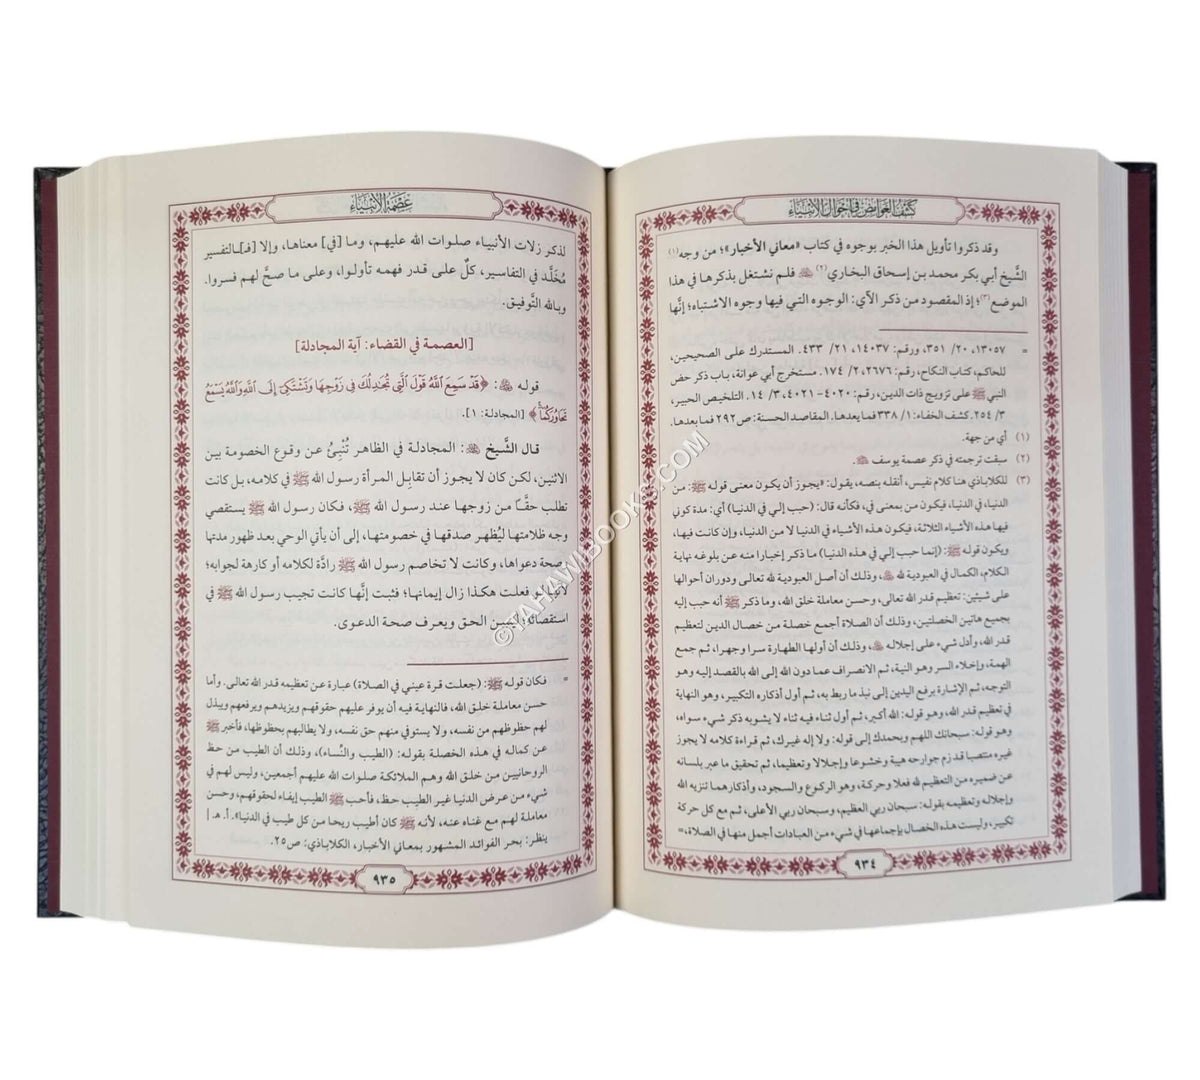 كشف الغوامض في أحوال الأنبياء
وقد ذكروا تأويل هذا الخبر بوجوه في كتاب «معاني الأخبار»؛ من وجه(١)
الشَّيخ أبي بكر محمد بن إسحاق البخاري(٢) ﷺ فلم نشتغل بذكرها في هذا
الموضع(٣)؛ إذ المقصود من ذكر الآي: الوجوه التي فيها وجوه الاشتباه؛ إنَّها
= ١٣٠٥٧، ٢٠/ ٣٥١، ورقم: ١٤٠٣٧، ٢١/ ٤٣٣. المستدرك على الصحيحين،
للحاكم، كتاب النكاح، رقم: ٢٦٧٦، ٢/ ١٧٤. مستخرج أبي عوانة، باب ذكر حض
النبي ﷺ على تزويج ذات الدين، رقم: ٤٠٢٠- ٤٠٢١، ٣/ ١٤. التلخيص الحبير،
٣/ ٢٥٤. كشف الخفاء: ١/ ٣٣٨ فما بعدها. المقاصد الحسنة: ص٢٩٢ فما بعدها.
(١) أي من جهة.
(٢) سبقت ترجمته في ذكر عصمة يوسف
(٣) للكلاباذي هنا كلام نفيس، أنقله بنصه، يقول: «يجوز أن يكون معنى قوله ﷺ: من
الدنيا، في الدنيا، فيكون من بمعنى في، فكأنه قال: (حبب إلي في الدنيا) أي: مدة كوني
فيها هذه الأشياء الثلاثة، فيكون هذه الأشياء في الدنيا لا من الدنيا، وإن كانت فيها،
ويكون قوله ﷺ: (إنما حبب إلي في هذه الدنيا) ما ذكر إخبارا منه عن بلوغه نهاية
الكلام، الكمال في العبودية لله، وذلك أن أصل العبودية لله تعالى ودوران أحوالها
على شيئين: تعظيم قدر الله تعالى، وحسن معاملة خلق الله، وما ذكر ﷺ أنه حبب إليه
بجميع هاتين الخصلتين، وذلك أن الصلاة أجمع خصلة من خصال الدين لتعظيم
قدر الله، وأدل شيء على إجلاله، وذلك أن أولها الطهارة سرا وجهرا، ثم جمع
الهمة، وإخلاء السر وهو النية، ثم الانصراف عما دون الله إلى الله بالقصد إليه وهو
التوجه، ثم الإشارة برفع اليدين إلى نبذ ما ربط به، ثم أول أذكاره التكبير، وهو النهاية
في تعظيم قدر الله، وهو قوله: الله أكبر، ثم أول ثناء فيه ثناء لا يشوبه ذكر شيء سواه،
وهو قوله: سبحانك اللهم وبحمدك إلى قوله: ولا إله غيرك، ثم قراءة كلامه لا يجوز
غيره منتصبا قد زم جوارحه هيبة وخشوعا وإجلالا وتعظيما، ثم تحقيق ما عبر بلسانه
عن ضميره من التعظيم لله فعلا وحركة، وهو الركوع والسجود، وأذكارهما تنزيه الله
وإجلاله وتعظيمه بقوله: سبحان ربي العظيم، وسبحان ربي الأعلى، ثم مع كل حركة
تكبير، وليست هذه الخصال بإجماعها في شيء من العبادات أجمل منها في الصلاة، =
٩٣٤
عصمة الأنبياء
لذكر زلات الأنبياء صلوات الله عليهم، وما [في] معناها، وإلا [فـ]ـالتفسير
مُخَلَّد في التفاسير، كلٌ على قدر فهمه تأولوا، وعلى ما صحَّ لهم فسروا.
وبالله التَّوفيق.
[العصمة في القضاء: آية المجادلة]
قوله: ﴿قَدْ سَمِعَ اللَّهُ قَوْلَ الَّتِي تُجَادِلُكَ فِي زَوْجِهَا وَتَشْتَكِي إِلَى اللَّهِ وَاللَّهُ يَسْمَعُ
تَحَاوُرَكُمَا﴾ [المجادلة: ١].
قال الشَّيخ: المجادلة في الظاهر تُنْبِئُ عن وقوع الخصومة بين
الاثنين، لكن كان لا يجوز أن تقابِل المرأة رسول الله ﷺ في كلامه، بل كانت
تطلب حقًّا من زوجها عند رسول الله ﷺ، فكان رسول الله ﷺ يستقصي
وجه ظلامتها ليُظهر صدقها في خصومتها، إلى أن يأتي الوحي بعد ظهور مدتها
وصحة دعواها، وكانت لا تخاصم رسول الله ﷺ رادَّة لكلامه أو كارهة لجوابه؛
فعلت هكذا زال إيمانها؛ فثبت إنَّها كانت تجيب رسول الله ﷺ في
استقصائه ليبين الحق ويعرف صحة الدعوى.
= فكان قوله ﷺ: (جعلت قرة عيني في الصلاة) عبارة عن تعظيمه قدر الله تعالى. وأما
حسن معاملة خلق الله، فالنهاية فيه أن يوفر عليهم حقوقهم ويزيدهم ويرفعهم ويبذل
لهم حظوظهم من نفسه، ولا يستوفي منهم حق نفسه، ولا يطالبهم بحظوظها، فأخبر ﷺ
عن كماله في هذه الخصلة بقوله: (الطيب والنِّساء)، وذلك أن الطيب من حظ
الروحانيين من خلق الله وهم الملائكة صلوات الله عليهم أجمعين، وليس لهم في
شيء من عرض الدنيا غير الطيب حظ، فأحب ﷺ الطيب إيفاء لحقوقهم، وحسن
معاملة لهم مع غناه عنه، لأنه ﷺ كان أطيب ريحا من كل طيب في الدنيا». أ. هـ |
ينظر: بحر الفوائد المشهور بمعاني الأخبار، الكلاباذي؛ ص٢٥.
٩٣٥
©TAHAWIBOOKS.COM